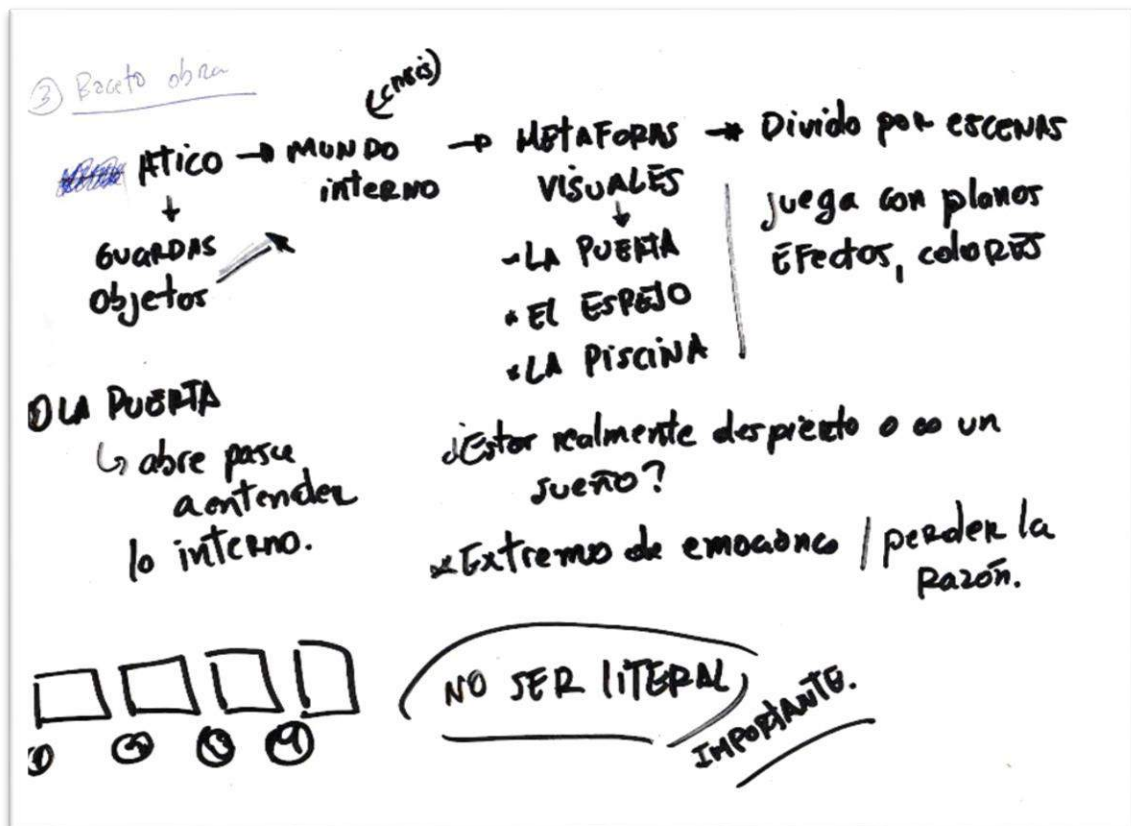 ③ Boceto obra
(crisis)
Atico → MUNDO → METAFORAS → Divido por escenas
interno
VISUALES
GUARDAS
objetos
- LA PUERTA
• El ESPEJO
• LA PISCINA
juega con planos
EFectos, coloRES
① LA PUERTA
abre paso
a entender
lo interno.
¿Estar realmente despierto o es un
sueño?
* Extremo de emociones / perder la
Razón.
① ② ③ ④
NO SER lITERAL
IMPORTANTE.